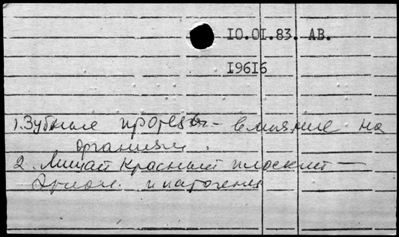 10.01.83. АВ.
19616
1. Зубные протезы - влияние на
организм.
2. Лишай красный плоский -
Этиол. и патогенез